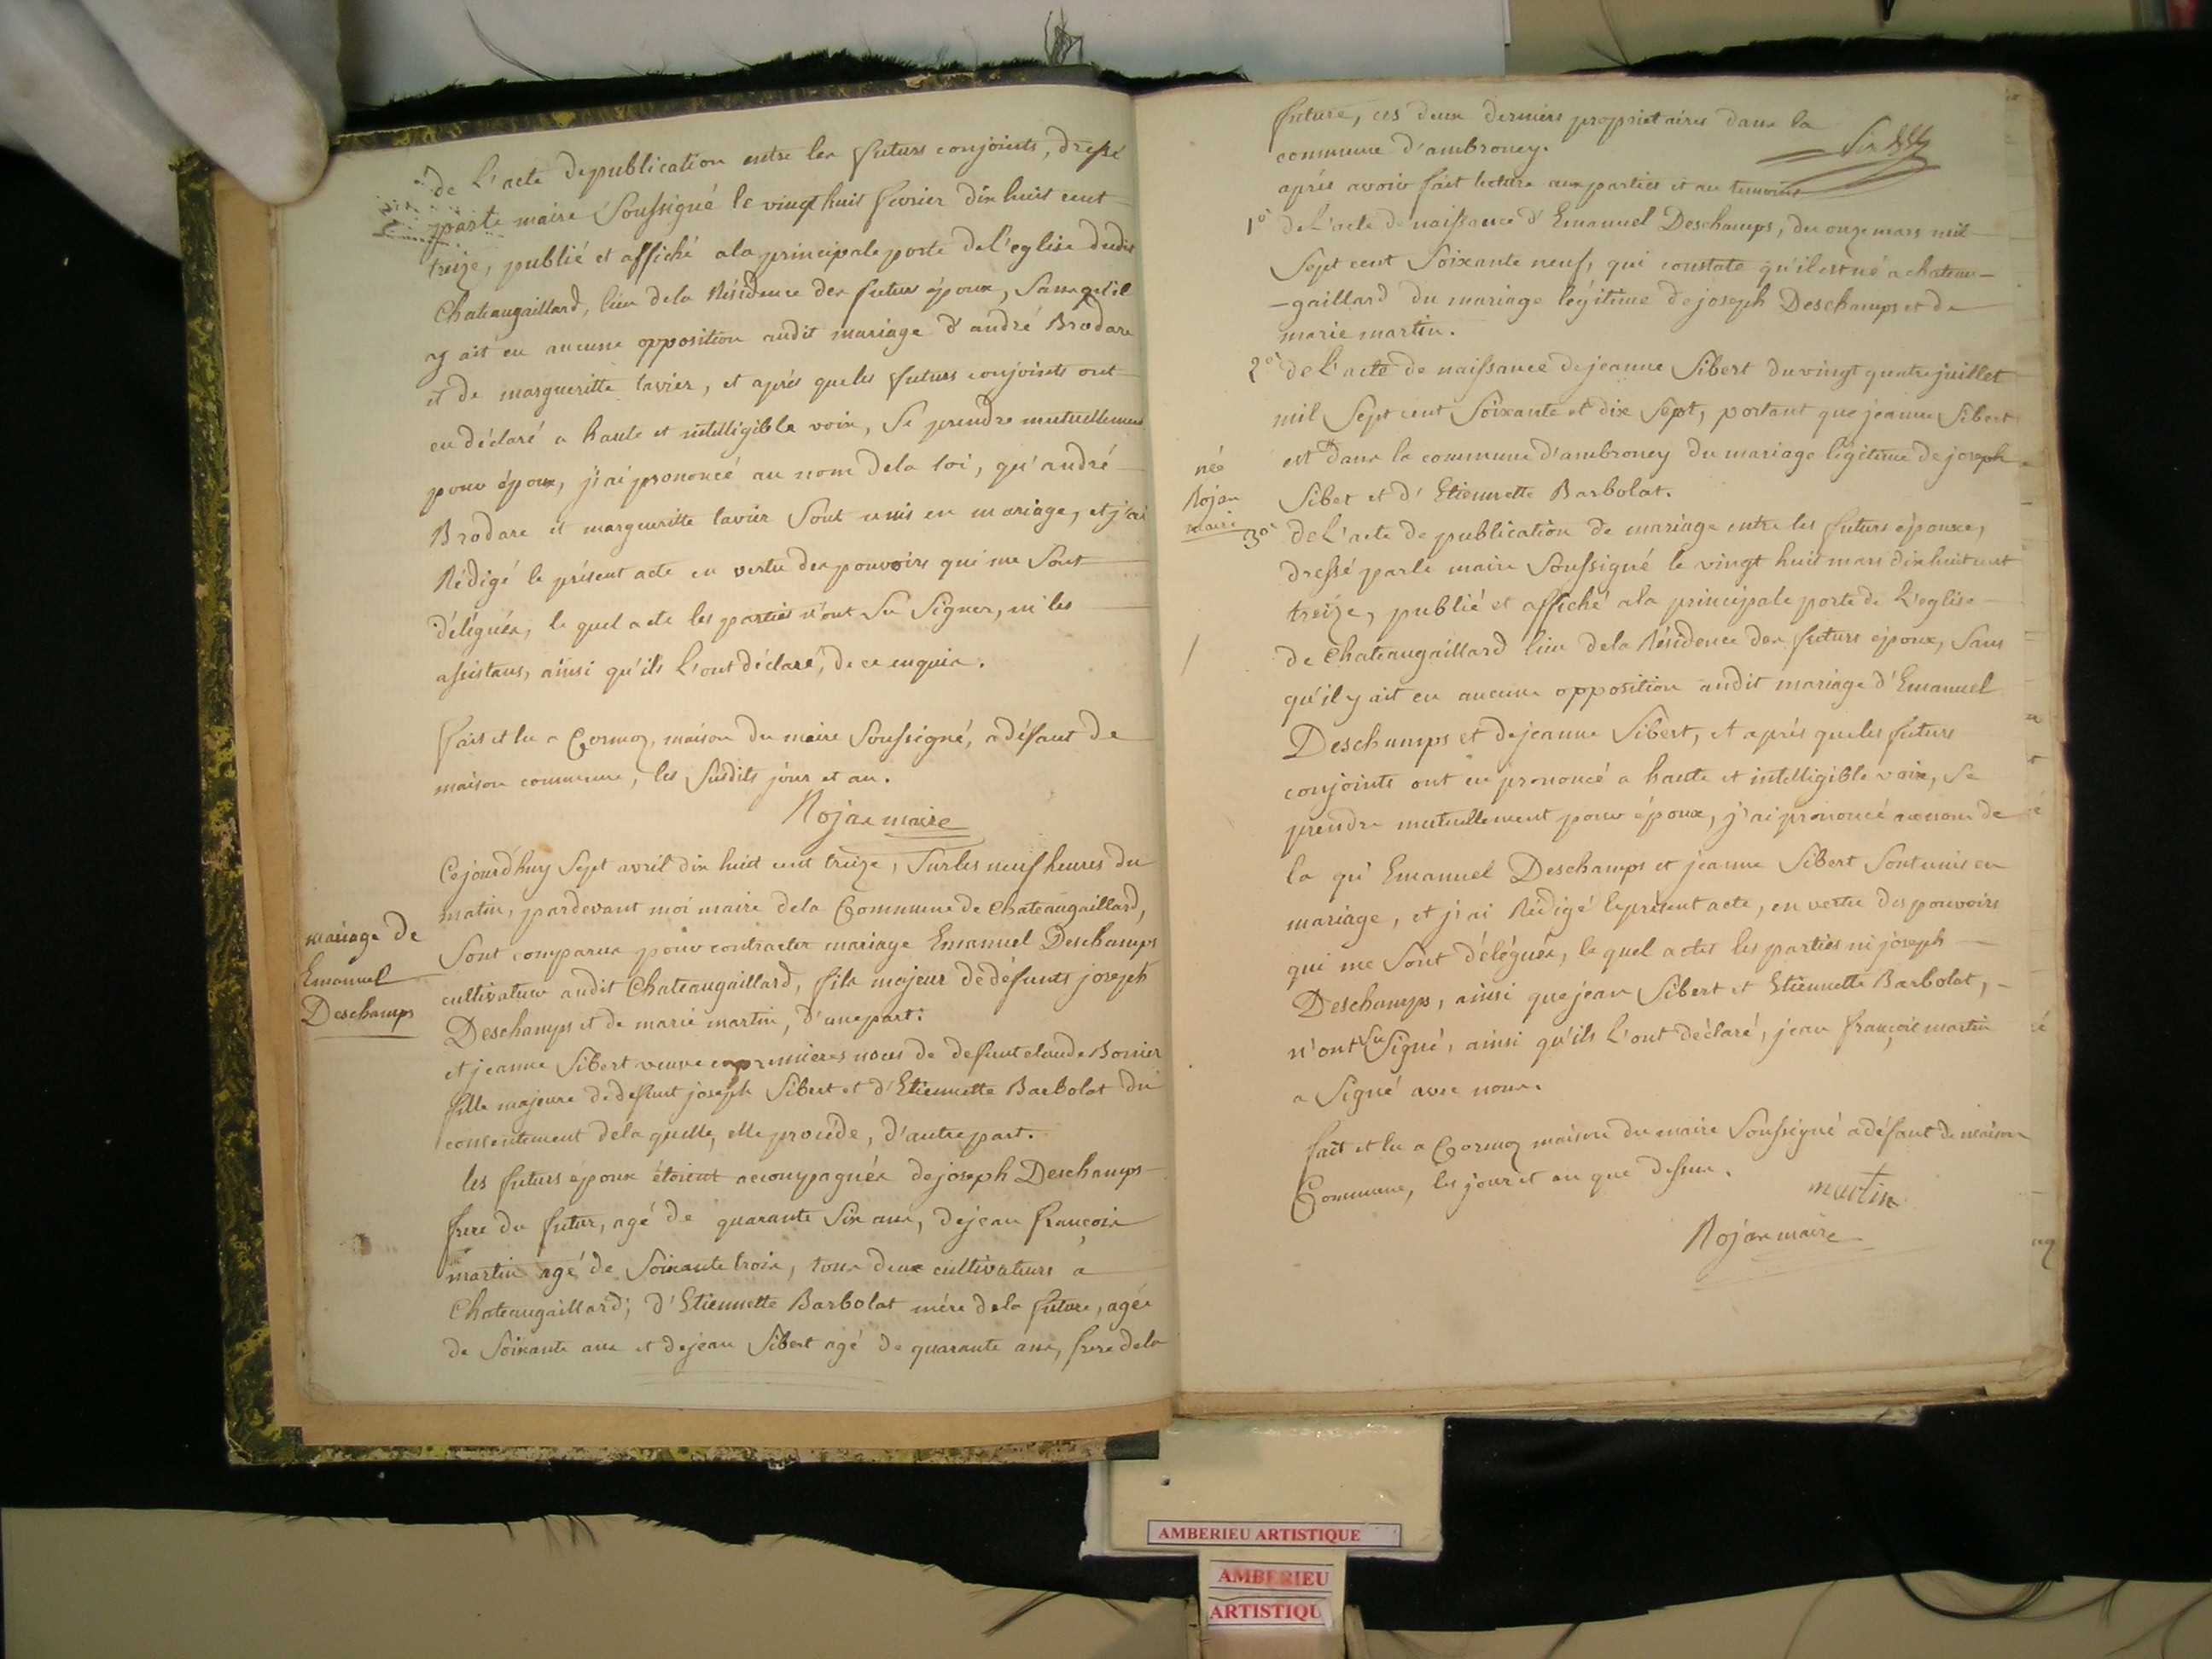 de L'acte de publication entre les futurs conjoints, dressé
par le maire Soussigné le vingt huit fevrier dix huit cent
treize, publié et affiché a la principale porte de l'eglise dudit
Chateaugaillard, lieu de la Résidence des futurs époux, Sans qu'il
ay ait eu aucune opposition audit mariage d'andré Brodare
et de margueritte tavier, et aprés que les futurs conjoints ont
eu déclaré a haute et intelligible voix, Se prendre mutuellement
pour époux, j'ai prononcé au nom de la loi, qu'andré
Brodare et margueritte tavier Sont unis en mariage, et j'ai
Rédigé le présent acte en vertu des pouvoirs qui me Sont
délégués, le quel acte les parties n'ont Su Signer, ni les
assistans, ainsi qu'ils l'ont déclaré, de ce enquis.
fait et lu a Cormoz, maison du maire Soussigné, a défaut de
maison commune, les Susdits jour et an.
Rojan maire
mariage de
Emanuel
Deschamps
Cejourd'huy Sept avril dix huit cent treize, Sur les neuf heures du
matin, pardevant moi maire de la Commune de Chateaugaillard,
Sont comparus pour contracter mariage Emanuel Deschamps
cultivateur audit Chateaugaillard, fils majeur de défunts joseph
Deschamps et de marie martin, d'une part:
et jeanne Sibert veuve en premieres noces de defunt claude Bonier
fille majeure de defunt joseph Sibert et d'Etiennette Barbolat du
consentement de la quelle, elle procéde, d'autre part.
les futurs époux étoient accompagnés de joseph Deschamps
frere du futur, agé de quarante Six ans, de jean françois
martin agé de Soixante trois, tous deux cultivateurs a
Chateaugaillard; d'Etiennette Barbolat mére de la future, agée
de Soixante ans et de jean Sibert agé de quarante ans, frere de la
future, ces deux derniers propriétaires dans la
commune d'ambroney.
aprés avoir fait lecture aux parties et au temoins
1° de L'acte de naissance d'Emanuel Deschamps, du onze mars mil
Sept cent Soixante neuf, qui constate qu'il est né a chateau-
-gaillard du mariage légitime de joseph Deschamps et de
marie martin.
2° de l'acte de naissance de jeanne Sibert du vingt quatre juillet
mil Sept cent Soixante et dix Sept, portant que jeanne Sibert
est dans la commune d'ambroney du mariage légitime de joseph
née
Rojan
maire
Sibet et d'Etiennette Barbolat.
3° de L'acte de publication de mariage entre les futurs époux,
dressé par le maire Soussigné le vingt huit mars dix huit cent
treize, publié et affiché a la principale porte de L'eglise
de Chateaugaillard lieu de la Résidence des futurs époux, Sans
qu'il y ait eu aucune opposition audit mariage d'Emanuel
Deschamps et de jeanne Sibert, et aprés que les futurs
conjoints ont eu prononcé a haute et intelligible voix, Se
prendre mutuellement pour époux, j'ai prononcé au nom de
la qu'Emanuel Deschamps et jeanne Sibert Sont unis en
mariage, et j'ai Rédigé le présent acte, en vertu des pouvoirs
qui me Sont délégués, le quel acte les parties ni joseph
Deschamps, ainsi que jean Sibert et Etiennette Barbolat,
n'ont Su Signé, ainsi qu'ils l'ont déclaré, jean françois martin
a Signé avec nous.
fait et lu a Cormoz maison du maire Soussigné a défaut de maison
Commune, les jour et an que dessus.
martin
Rojan maire
AMBERIEU ARTISTIQUE
AMBERIEU
ARTISTIQU